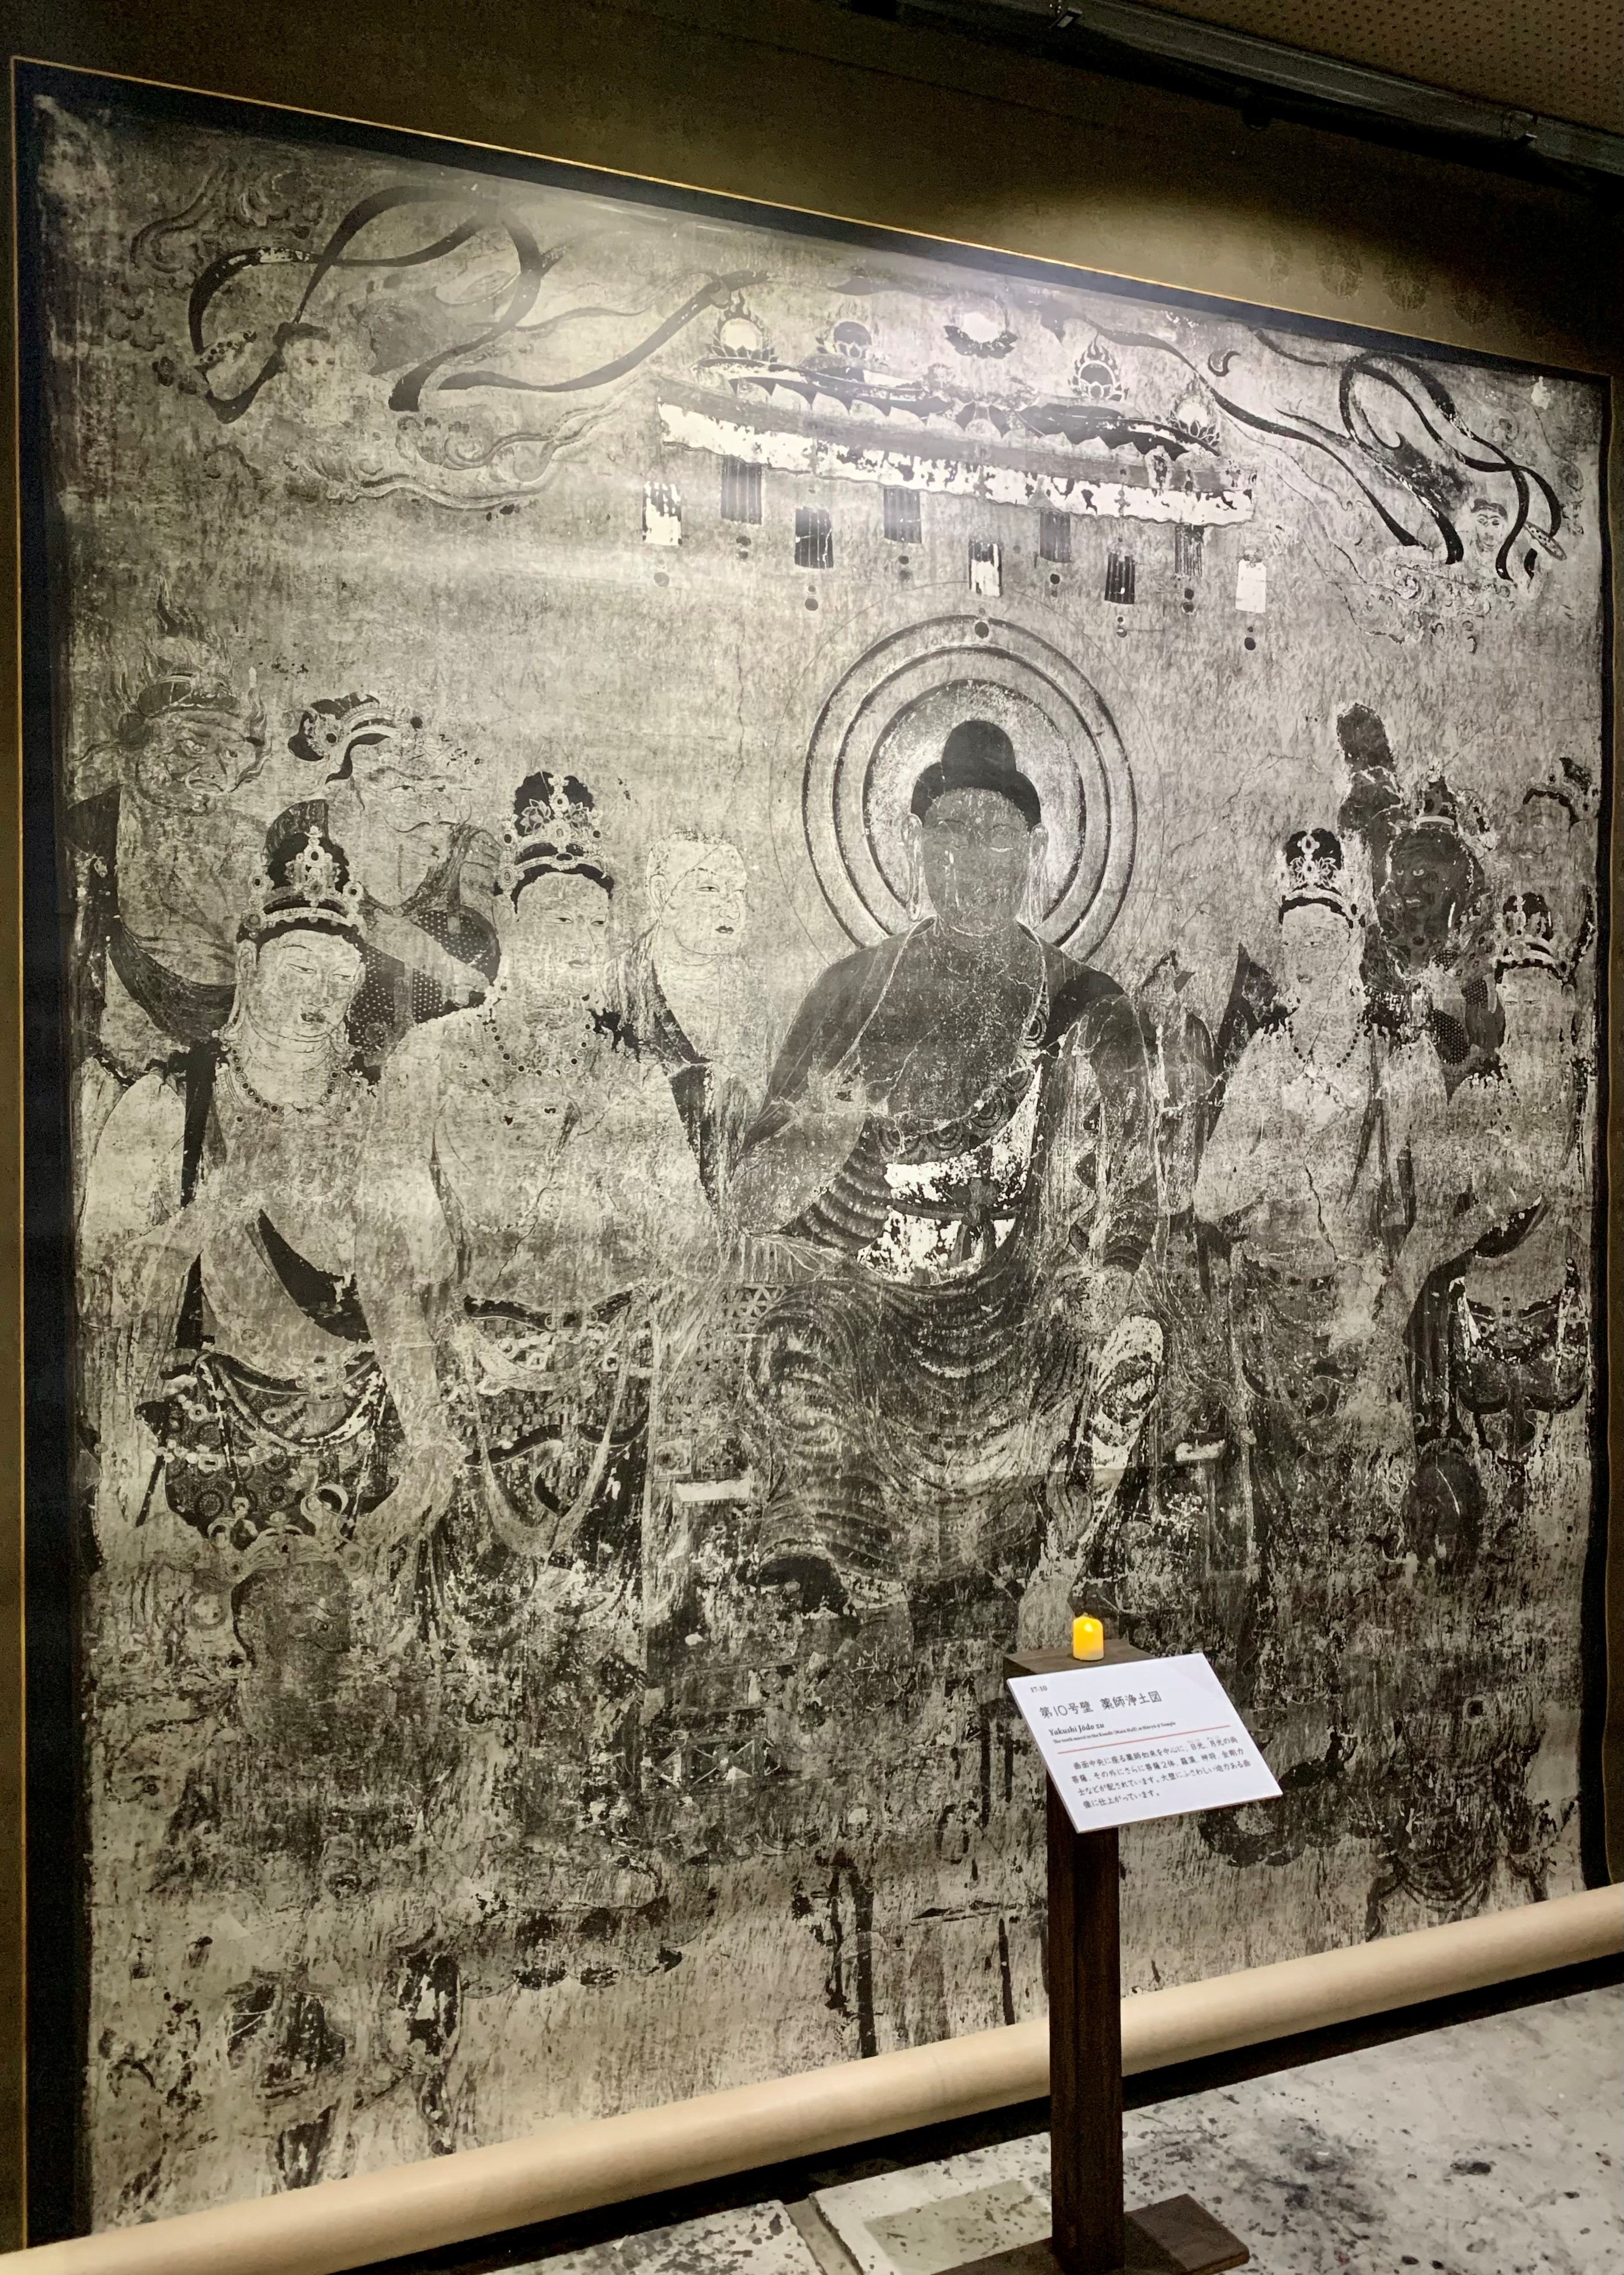 17-10
第10号壁 薬師浄土図
Yakushi Jōdo zu
The tenth mural in the Kondō (Main Hall) at Hōryū-ji Temple
画面中央に座る薬師如来を中心に、日光、月光の両
菩薩、その外にさらに菩薩2体、羅漢、神将、金剛力
士などが配されています。大壁にふさわしい迫力ある画
像に仕上がっています。